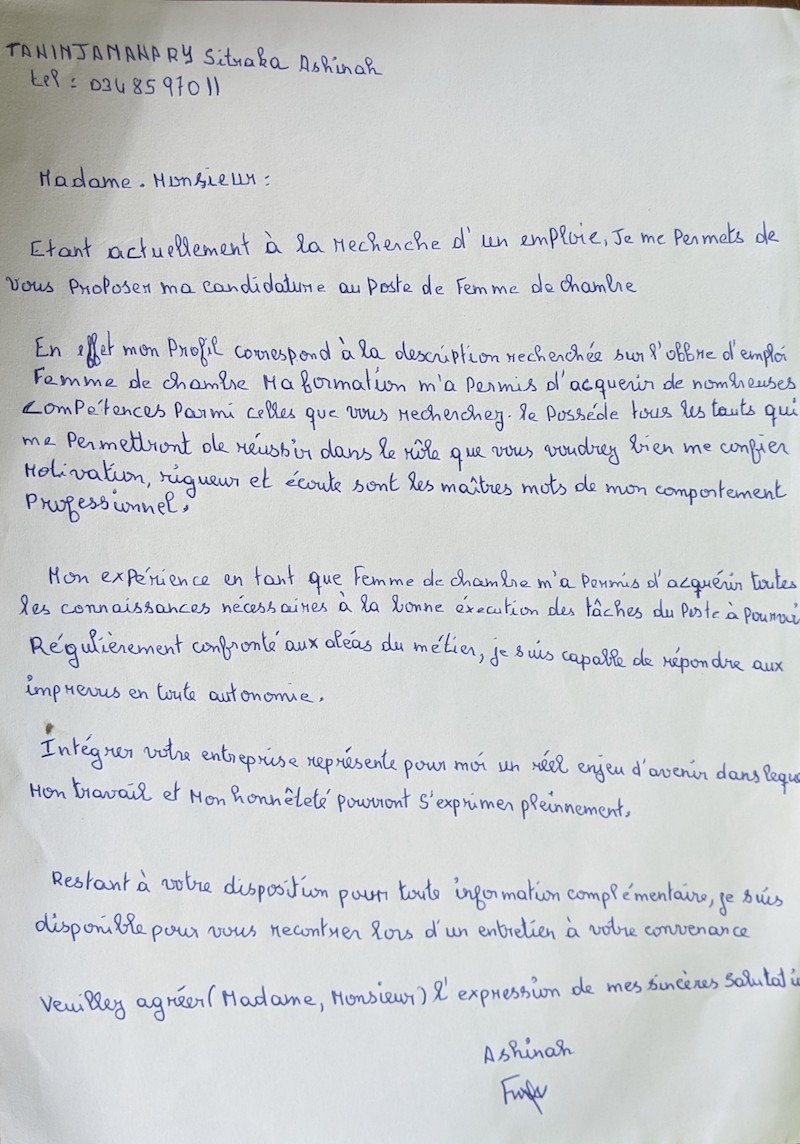 TANINJAMANARY Sitraka Ashinah
tel : 034 85 970 11
Madame . Monsieur :
Etant actuellement à la recherche d'un emploie, Je me Permets de
vous Proposer ma candidature au Poste de Femme de chambre
En effet mon Profil correspond à la description recherchée sur l'offre d'emploi
Femme de chambre Ma formation m'a Permis d'acquerir de nombreuses
compétences Parmi celles que vous recherchez. Je Posséde tous les touts qui
me Permettront de réussir dans le rôle que vous voudrez bien me confier
Motivation, rigueur et écoute sont les maîtres mots de mon comportement
Professionnel,
Mon expérience en tant que Femme de chambre m'a Permis d'acquérir toutes
les connaissances nécessaires à la bonne éxecution des tâches du Poste à Pourvoi
Régulièrement confronté aux aléas du métier, je suis capable de répondre aux
imprevus en toute autonomie.
Intégrer votre entreprise représente pour moi un réel enjeu d'avenir dans leque
Mon travail et Mon honnêteté pourront s'exprimer pleinnement,
Restant à votre disposition pour toute information complémentaire, je suis
disponible pour vous recontrer lors d'un entretien à votre convenance
Veuillez agréer (Madame, Monsieur) l'expression de mes sincères Salutati
Ashinah